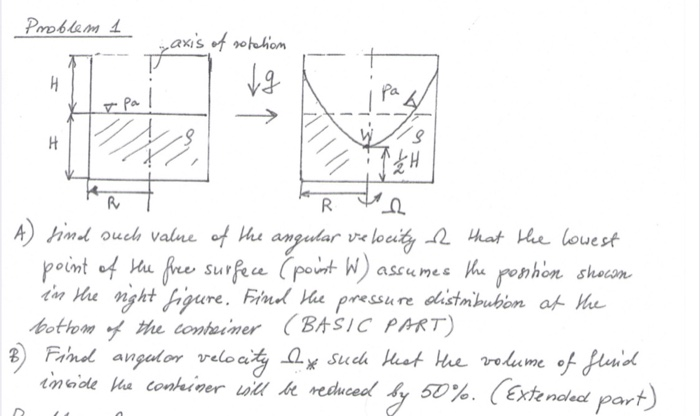 Problem 1
axis of rotation
H
pa
g
pa
H
ρ
W
ρ
½H
R
R
Ω
A) find such value of the angular velocity Ω that the lowest
point of the free surface (point W) assumes the position shown
in the right figure. Find the pressure distribution at the
bottom of the container (BASIC PART)
B) Find angular velocity Ω* such that the volume of fluid
inside the container will be reduced by 50%. (Extended part)